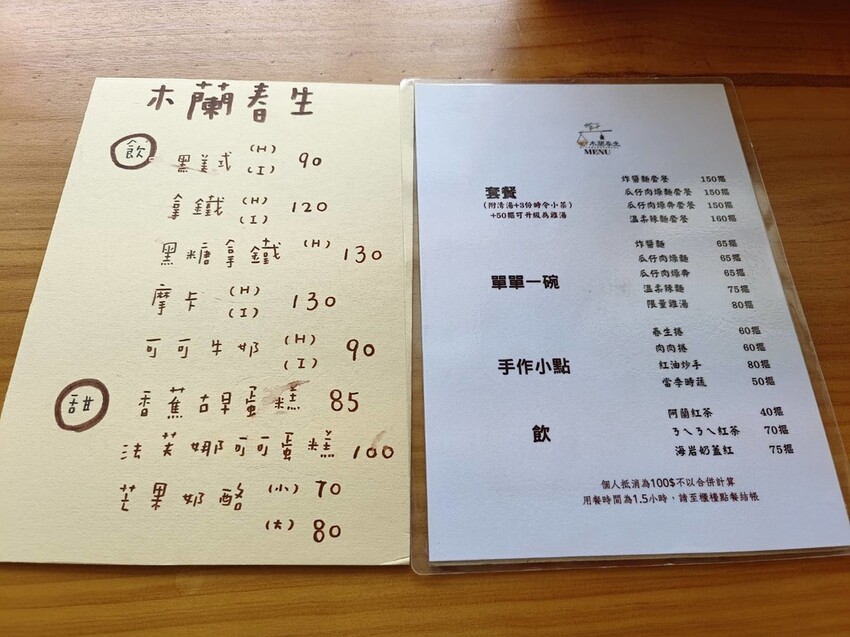 木蘭春生
飲
黑美式 (H) (I) 90
拿鐵 (H) (I) 120
黑糖拿鐵 (H) 130
摩卡 (H) (I) 130
可可牛奶 (H) (I) 90
甜
香蕉古早蛋糕 85
法芙娜可可蛋糕 100
芒果奶酪 (小) 70
(大) 80
木蘭春生
MENU
套餐
(附清湯+3份時令小菜)
+50摳可升級為雞湯
炸醬麵套餐 150摳
瓜仔肉燥麵套餐 150摳
瓜仔肉燥弆套餐 150摳
溫柔辣麵套餐 160摳
單單一碗
炸醬麵 65摳
瓜仔肉燥麵 65摳
瓜仔肉燥弆 65摳
溫柔辣麵 75摳
限量雞湯 80摳
手作小點
春生捲 60摳
肉肉捲 60摳
紅油炒手 80摳
當季時蔬 50摳
飲
阿蘭紅茶 40摳
ㄋㄟㄋㄟ紅茶 70摳
海岩奶蓋紅 75摳
個人抵消為100$不以合併計算
用餐時間為1.5小時，請至櫃檯點餐結帳